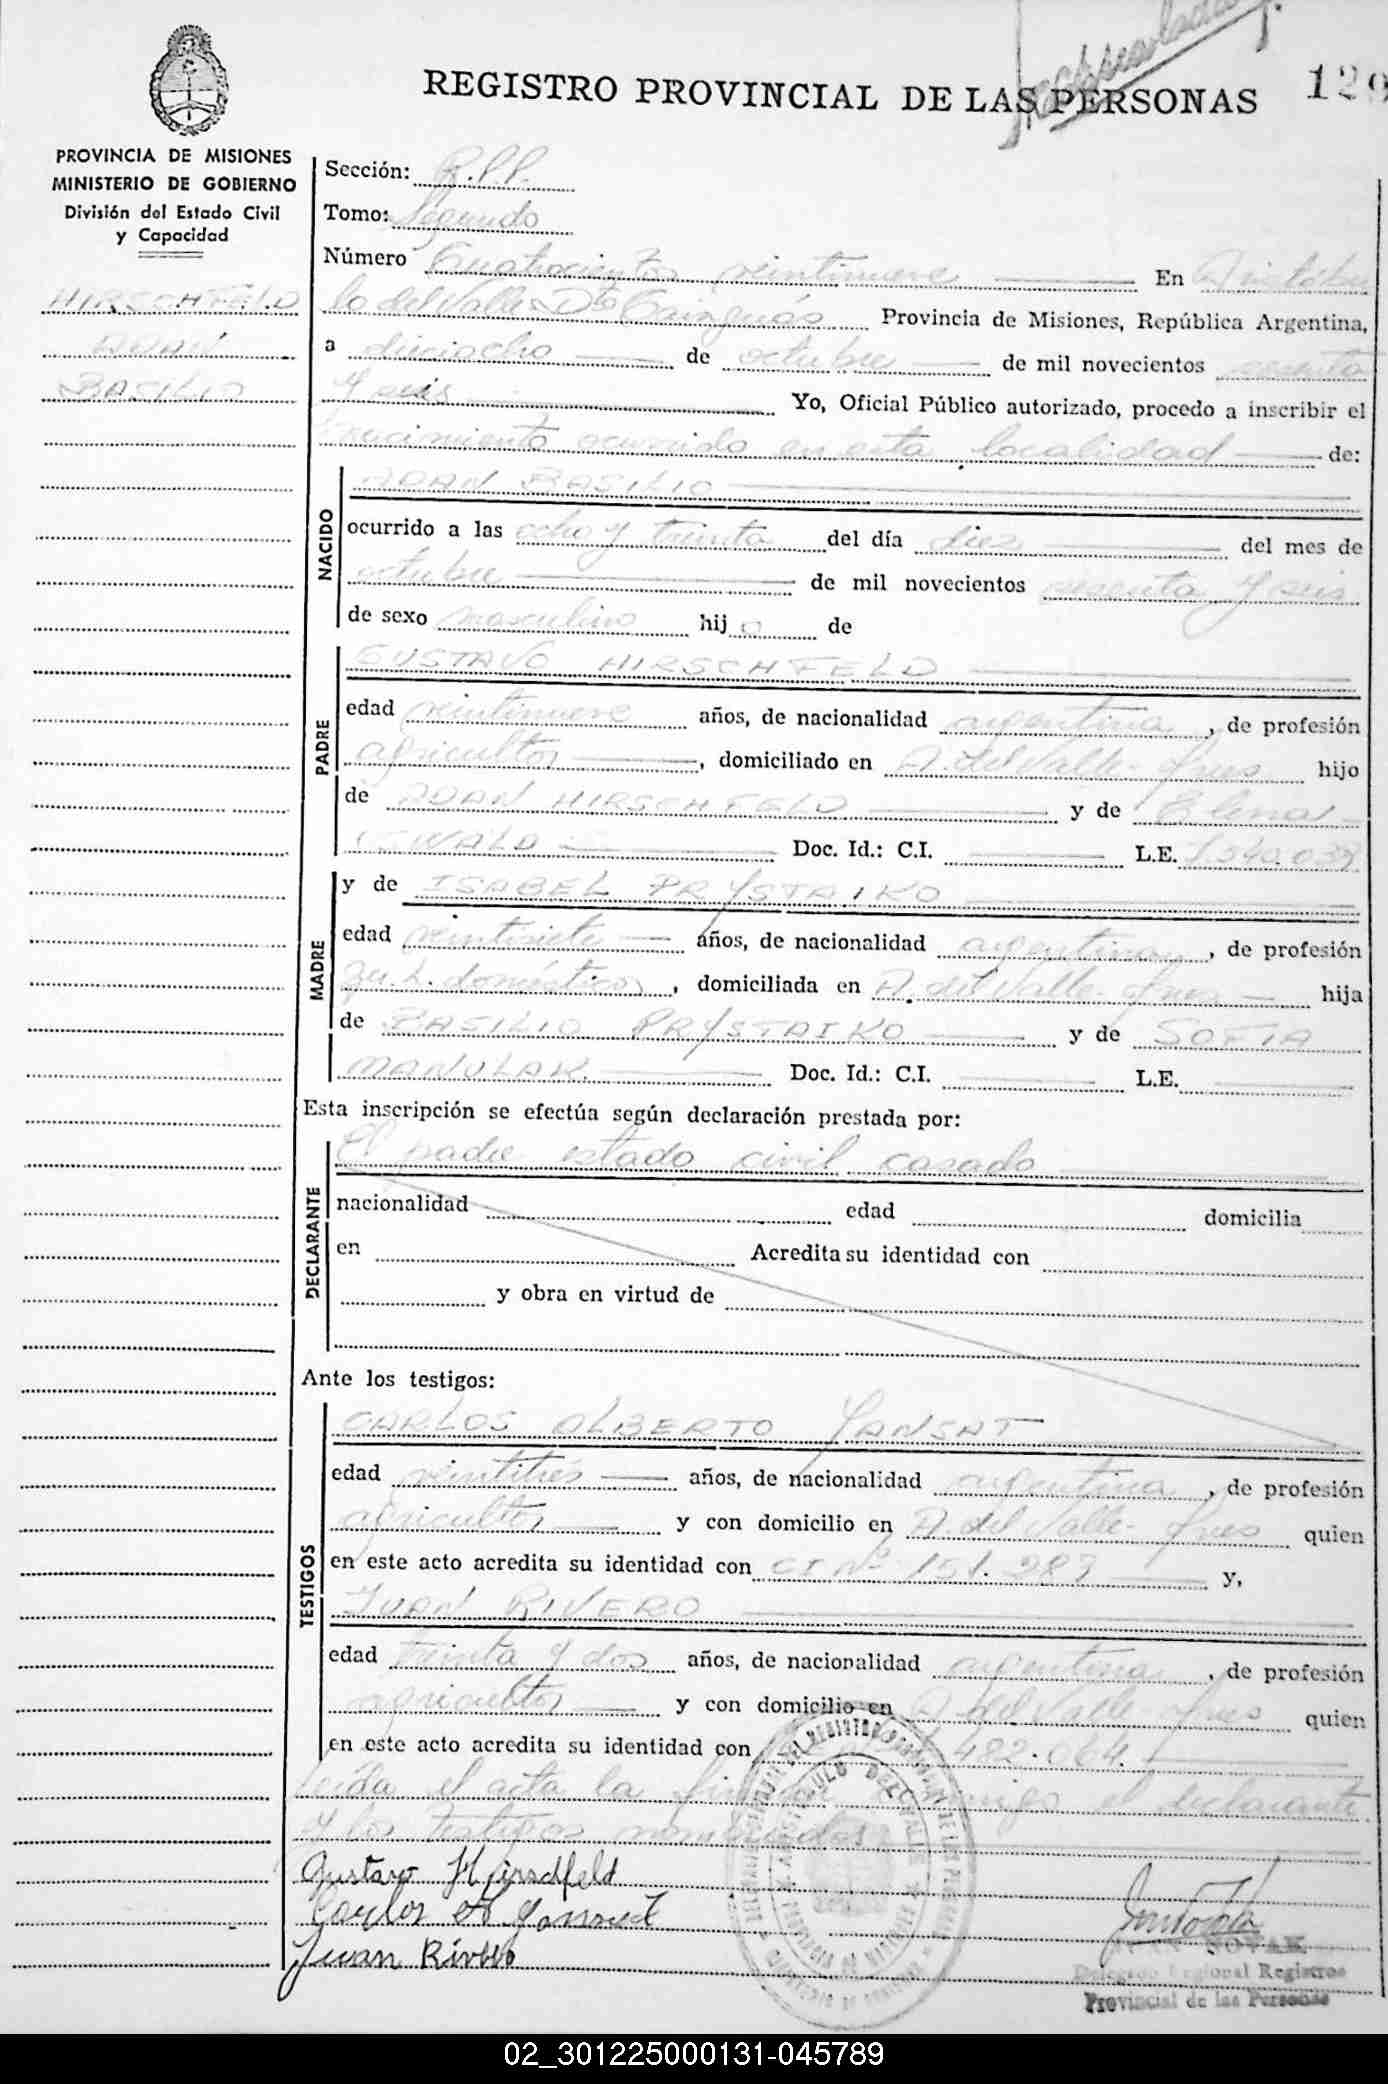 REGISTRO PROVINCIAL DE LAS PERSONAS
129
PROVINCIA DE MISIONES
MINISTERIO DE GOBIERNO
División del Estado Civil
y Capacidad
HIRSCHFELD
ADAN
BASILIO
Sección: R.P.P.
Tomo: Segundo
Número Cuatrocientos veintinueve En Aristóbu
lo del Valle Dto Cainguás Provincia de Misiones, República Argentina,
a dieciocho de octubre de mil novecientos sesenta
y seis Yo, Oficial Público autorizado, procedo a inscribir el
nacimiento ocurrido en esta localidad de:
NACIDO
ADAN BASILIO
ocurrido a las ocho y treinta del día diez del mes de
octubre de mil novecientos sesenta y seis
de sexo masculino hijo de
PADRE
GUSTAVO HIRSCHFELD
edad veintinueve años, de nacionalidad argentina, de profesión
agricultor, domiciliado en A. del Valle - Mnes hijo
de ADAN HIRSCHFELD y de Elena
EWALD Doc. Id.: C.I. L.E. 7.540.039
MADRE
y de ISABEL PRYSTAIKO
edad veintisiete años, de nacionalidad argentina, de profesión
domésticos, domiciliada en A. del Valle - Mnes hija
de BASILIO PRYSTAIKO y de SOFIA
MANULAK Doc. Id.: C.I. L.E.
Esta inscripción se efectúa según declaración prestada por:
DECLARANTE
El padre estado civil casado
nacionalidad edad domicilia
en Acredita su identidad con
y obra en virtud de
Ante los testigos:
TESTIGOS
CARLOS ALBERTO YANSAT
edad veintitrés años, de nacionalidad argentina, de profesión
agricultor y con domicilio en A. del Valle - Mnes quien
en este acto acredita su identidad con CI Nº 151.287 y,
JUAN RIVERO
edad treinta y dos años, de nacionalidad argentina, de profesión
agricultor y con domicilio en A. del Valle - Mnes quien
en este acto acredita su identidad con 482.064.
Leída el acta la firman conmigo el declarante
y los testigos nombrados
Gustavo Hirschfeld
Carlos A Yansat
Juan Rivero
Delegado Regional Registros
Provincial de las Personas
02_301225000131-045789